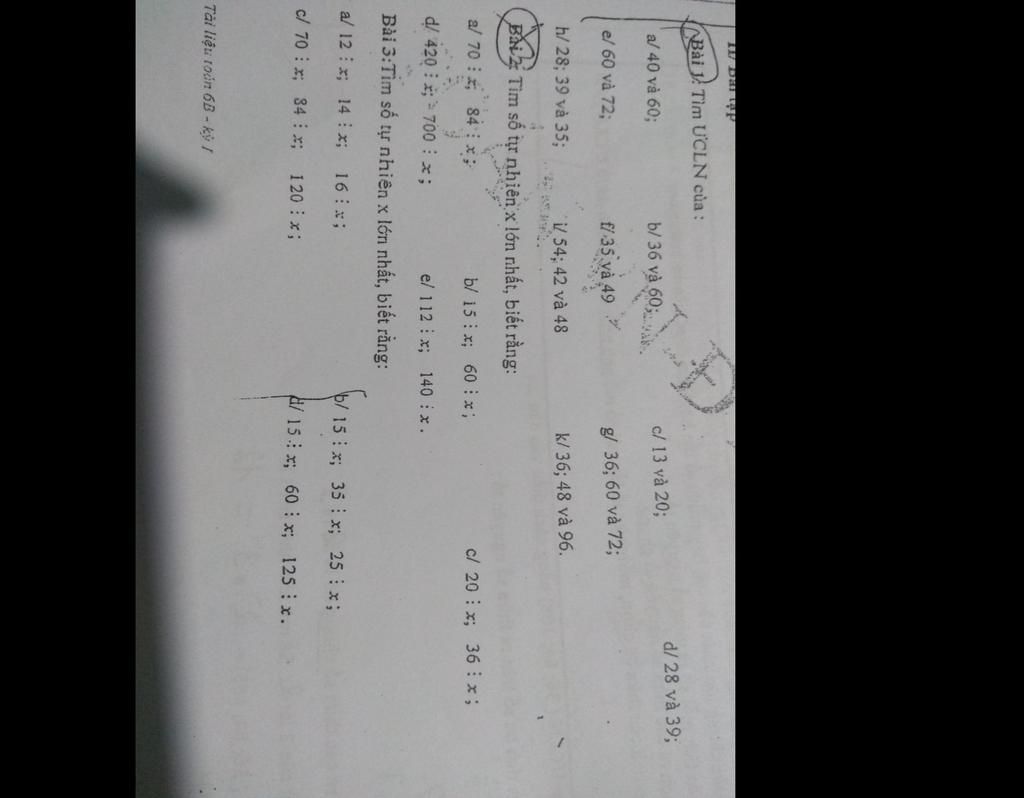 II/ Bài tập
Bài 1: Tìm ƯCLN của :
a/ 40 và 60; b/ 36 và 60; c/ 13 và 20; d/ 28 và 39;
e/ 60 và 72; f/ 35 và 49 g/ 36; 60 và 72;
h/ 28; 39 và 35; i/ 54; 42 và 48 k/ 36; 48 và 96.
Bài 2: Tìm số tự nhiên x lớn nhất, biết rằng:
a/ 70 ⋮ x; 84 ⋮ x; b/ 15 ⋮ x; 60 ⋮ x; c/ 20 ⋮ x; 36 ⋮ x;
d/ 420 ⋮ x; 700 ⋮ x; e/ 112 ⋮ x; 140 ⋮ x.
Bài 3:Tìm số tự nhiên x lớn nhất, biết rằng:
a/ 12 ⋮ x; 14 ⋮ x; 16 ⋮ x; b/ 15 ⋮ x; 35 ⋮ x; 25 ⋮ x;
c/ 70 ⋮ x; 84 ⋮ x; 120 ⋮ x; d/ 15 ⋮ x; 60 ⋮ x; 125 ⋮ x.
Tài liệu toán 6B - kỳ I